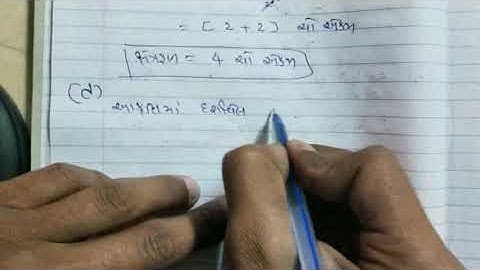 = [ 2 + 2 ] ચો એકમ
ક્ષેત્રફળ = 4 ચો એકમ
(d)
આકૃતિમાં દર્શાવેલ